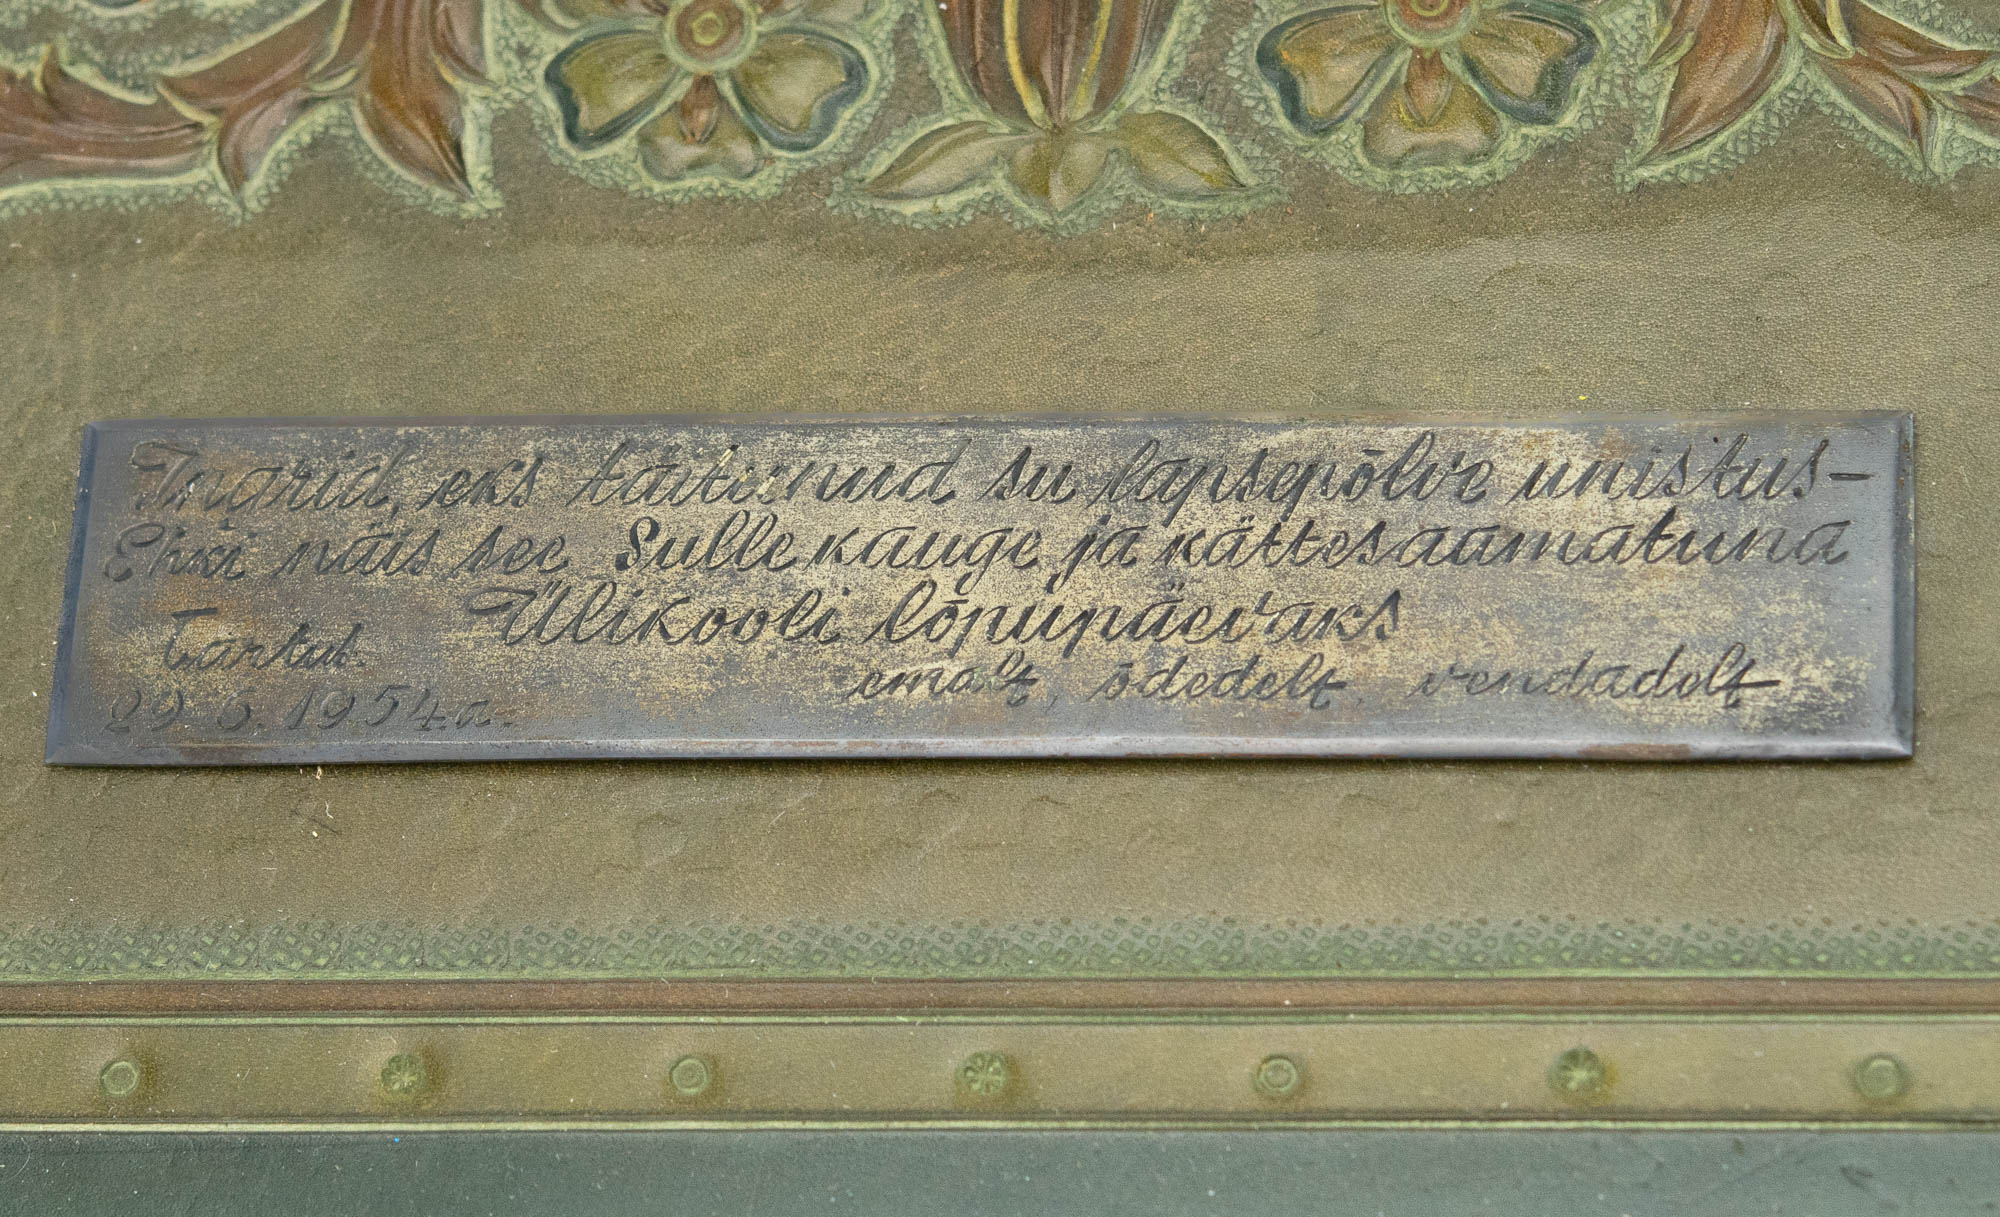 Ingrid, eks täitunud su lapsepõlve unistus-
Ehki näis see Sulle kauge ja kättesaamatuna
Ülikooli lõpupäevaks
Tartus.
29. 6. 1954 a.
emalt, õdedelt, vendadelt